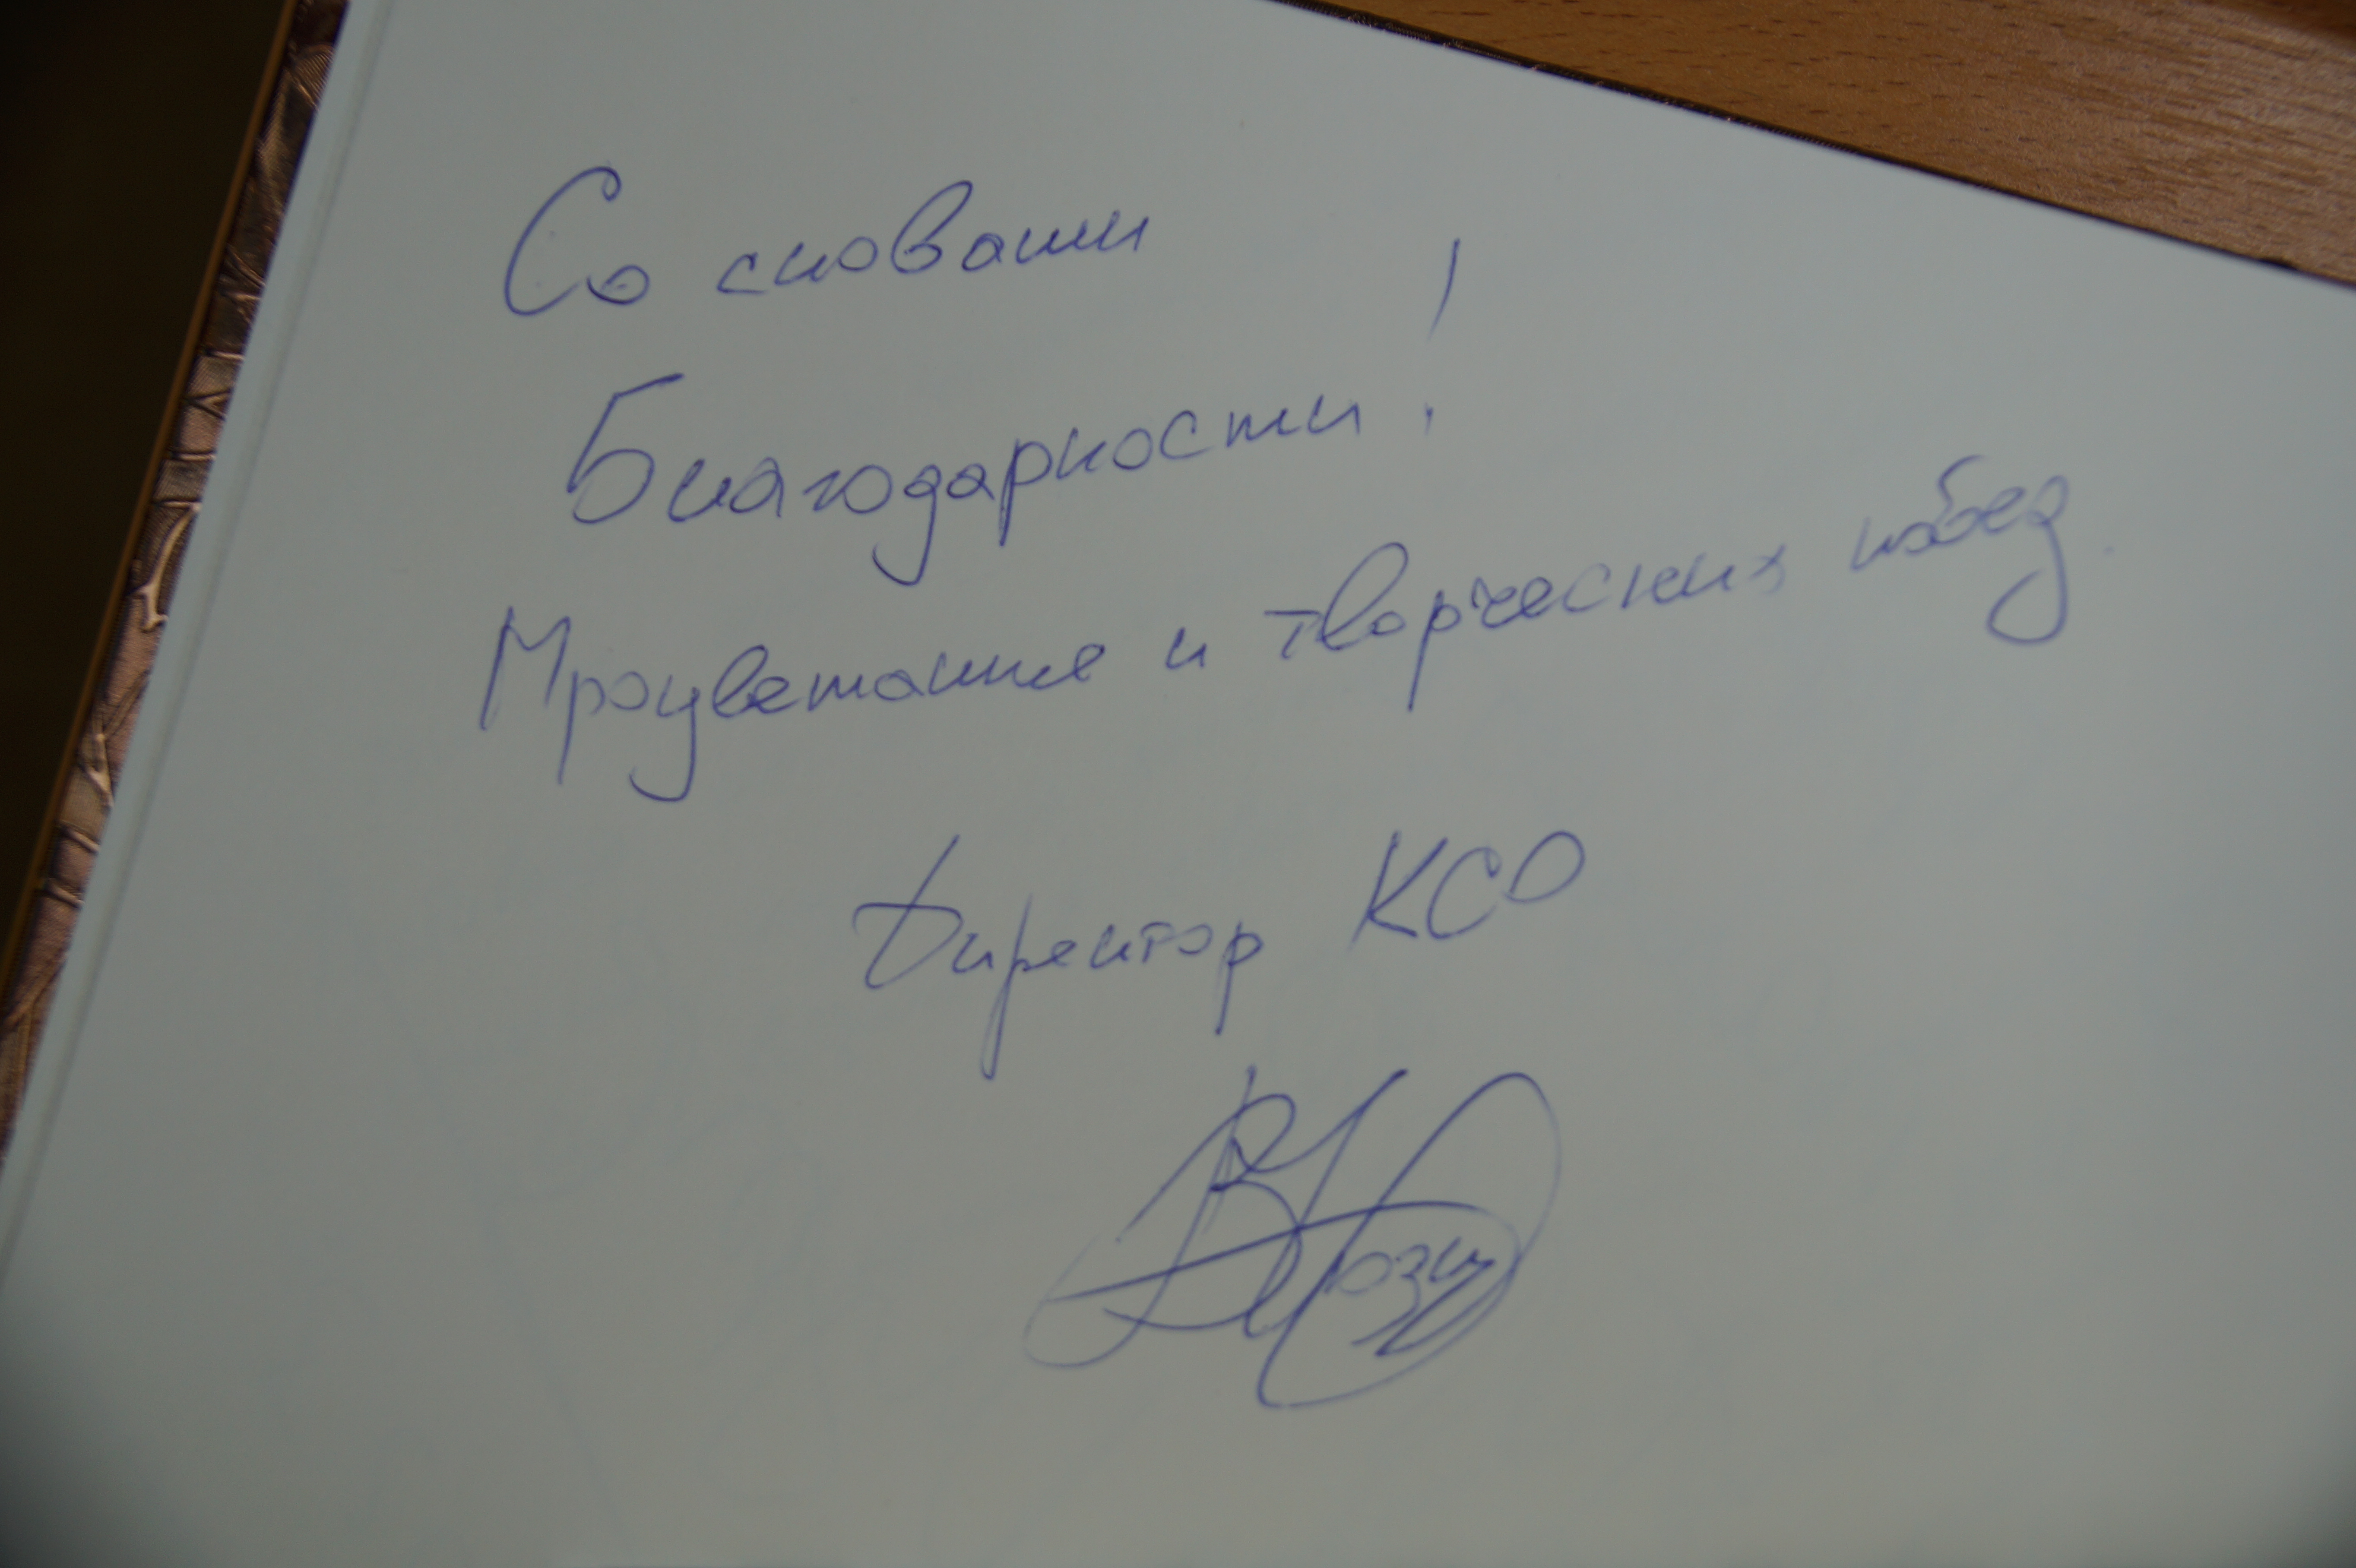 Со словами
Благодарности!
Процветания и творческих побед.
Директор КСО